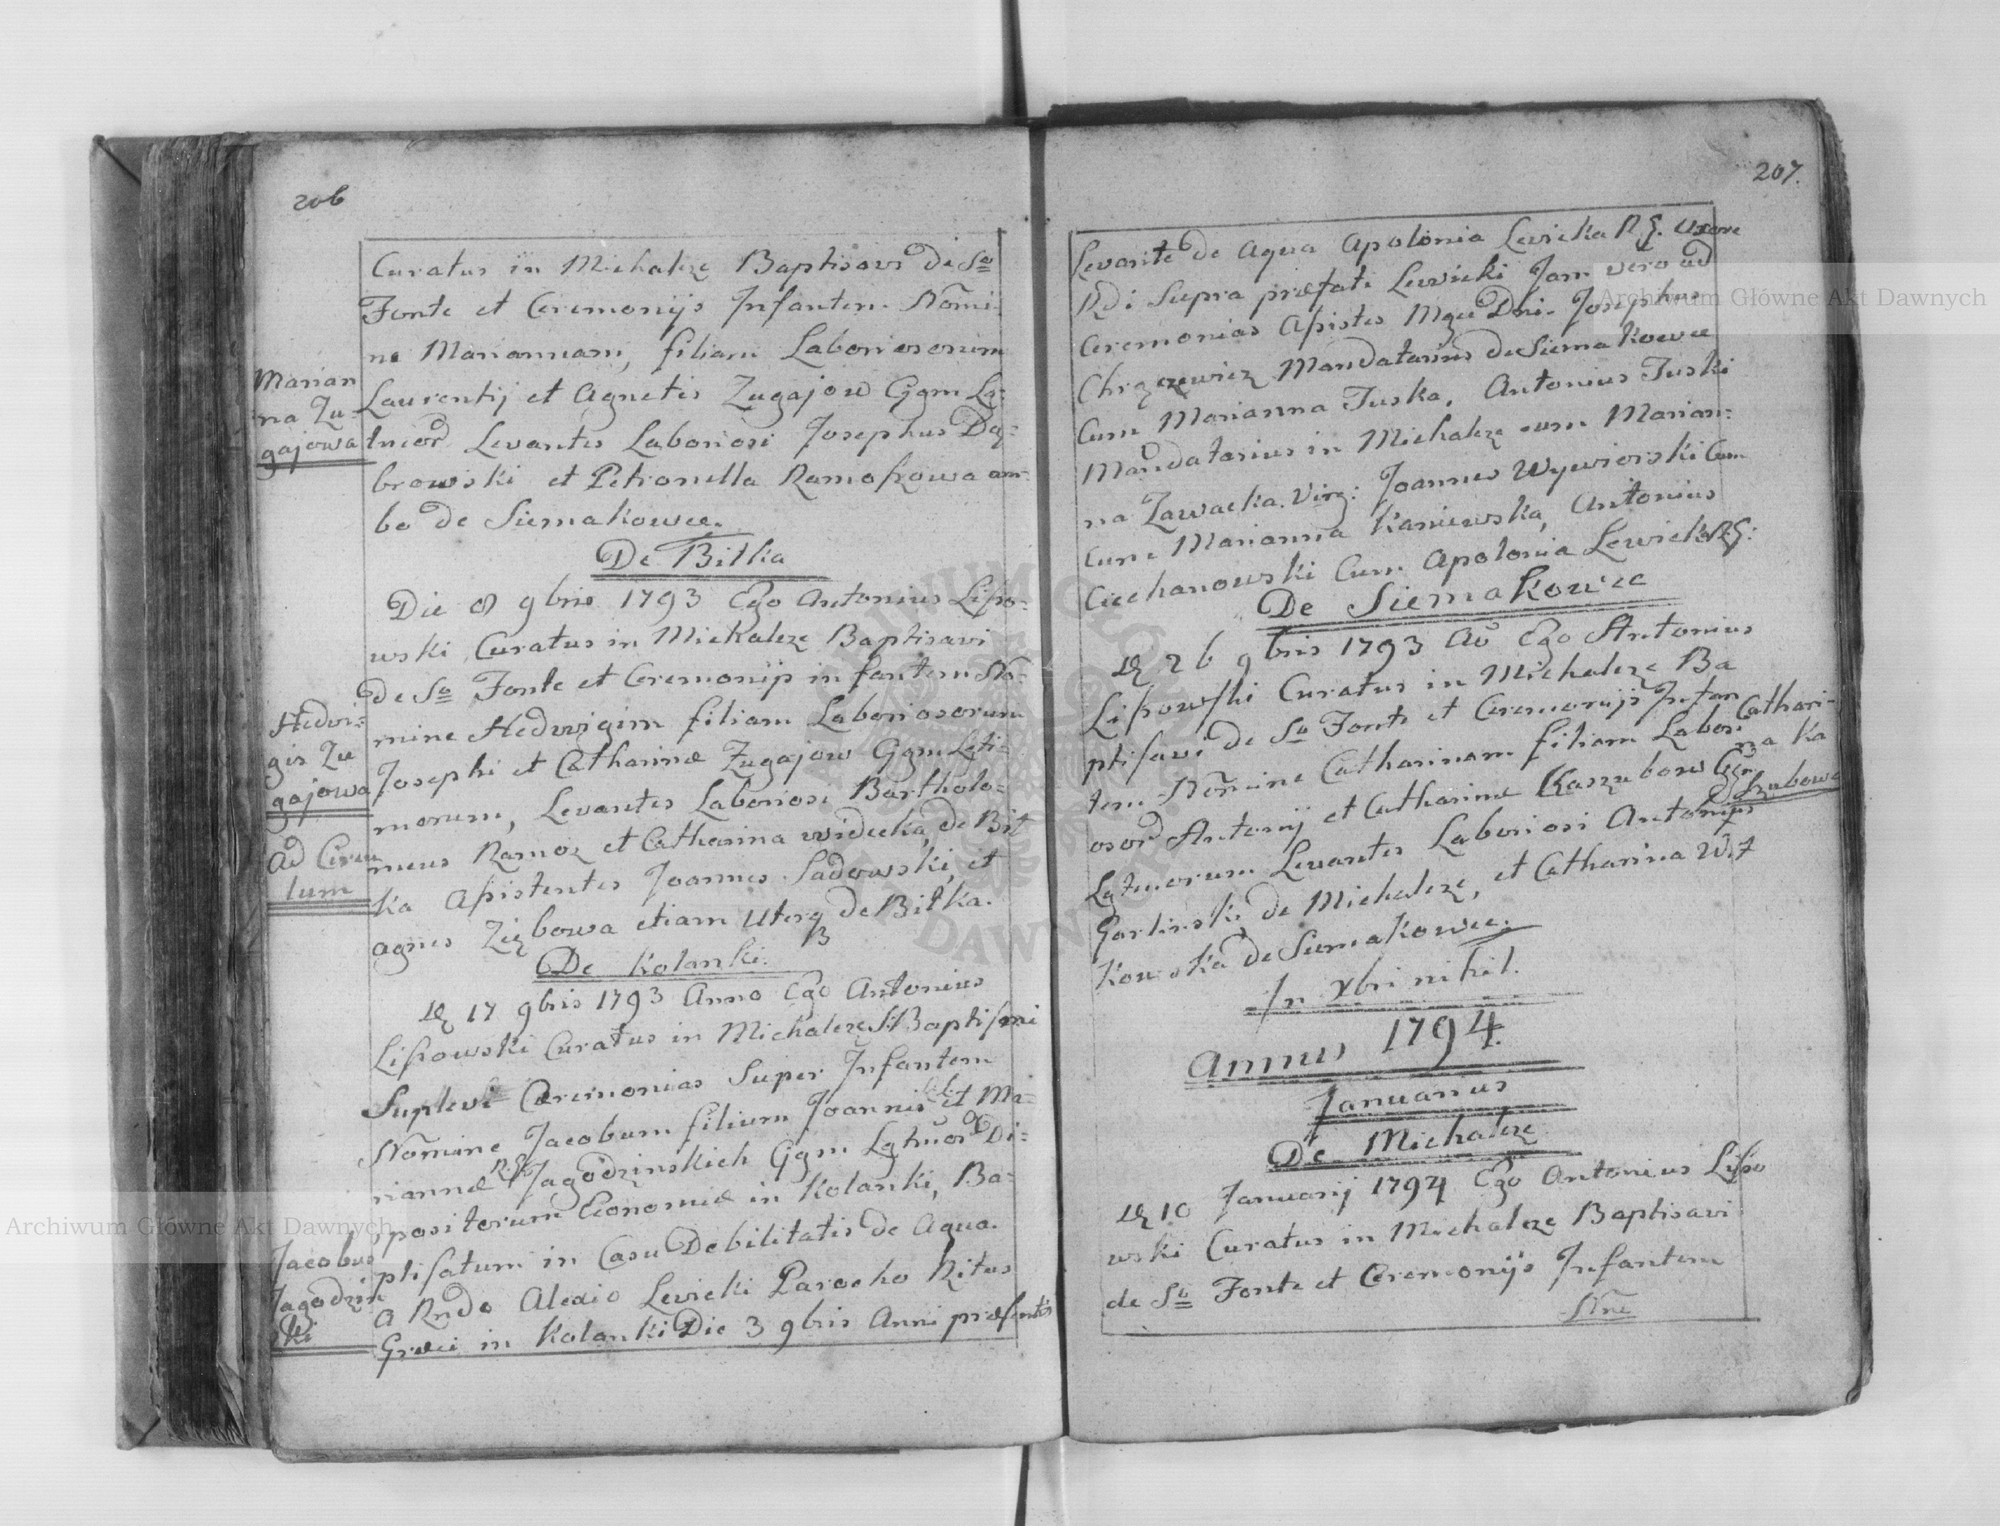 206
Curatus in Michalcze Baptisavi de So
Fonte et Ceremonijs Infantem Nomi-
ne Mariannam, filiam Laboriosorum
Laurentij et Agnetis Zugajow Ggm
Levantes Laboriosi Josephus Dą-
browski et Petronella am-
bo de Siemakowce.
Marian
na Zu-
gajowa
De Bilka
Die 8 9bris 1793 Ego Antonius Lisso-
wski Curatus in Michalcze Baptisavi
De So Fonte et Ceremonijs infantem No-
mine Hedvigim filiam Laboriosorum
Josephi et Catharinæ Zugajow Ggm Leti-
morum, Levantes Laboriosi Bartholo-
meus Ramoz et Catharina de Bil
ka Assistentes Joannes Sadowski, et
agnes Ziębowa etiam Uterq de Bilka.
Hedvi-
gis Zu
gajowa
Ad Circu
lum
De Kolanki.
17 9bris 1793 Anno Ego Antonius
Lissowski Curatus in Michalcze S: Baptismi
Suplevi Cæremonias Super Infantem
Nomine Jacobum filium Joannis et Ma-
riannæ Jagodzinskich Ggm Di-
spositorum Economiæ in Kolanki, Ba-
ptisatum in Casu Debilitatis de Aqua.
A Rndo Alexio Levicki Parocho Ritus
Græci in Kolanki Die 3 9bris Anni præsentis
Jacobus
Jagodzin
ski
207.
Levante de Aqua Apolonia Levicka R.G. Uxore
Rdi Supra præfati Lewicki Jam vero ad
Ceremonias Assistes Mgci Dni. Josephus
Mandatarius de Siemakowce
Cum Marianna Tuska, Antonius Tuski
Mandatarius in Michalcze cum Marian-
na Zawacka Virg: Joannes Wywiorski Cum
Cum Marianna Kaniewska, Antonius
Ciechanowski Cum Apolonia Lewicka R.G:
De Siemakowce
26 9bris 1793 Ao Ego Antonius
Lissowski Curatus in Michalcze Ba
ptisavi de So Fonte et Ceremonijs Infan
tem Nomine Catharinam filiam Labori
osor Antonij et Catharinæ Kaszubow Ggm
Lgtmorum Levantes Laboriosi Antonius
Garlinski de Michalcze, et Catharina Wit
kowska de Siemakowce.
Cathari-
na Ka
szubowa
In Xbri nihil.
Annus 1794.
Januarius
De Michalcze
10 Januarij 1794 Ego Antonius Lisso
wski Curatus in Michalcze Baptisavi
de So Fonte et Ceremonijs Infantem
Nne
Archiwum Główne Akt Dawnych
Archiwum Główne Akt Dawnych